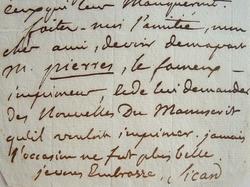 ceux qui leur manqueront
faites-moi l'amitié, mon
cher ami, de voir de ma part
m. pierres, le fameux
imprimeur, & de lui demander
des nouvelles Du Manuscrit
qu'il vouloit imprimer. jamais
l'occasion ne fut plus belle
je vous Embrasse, Sicard